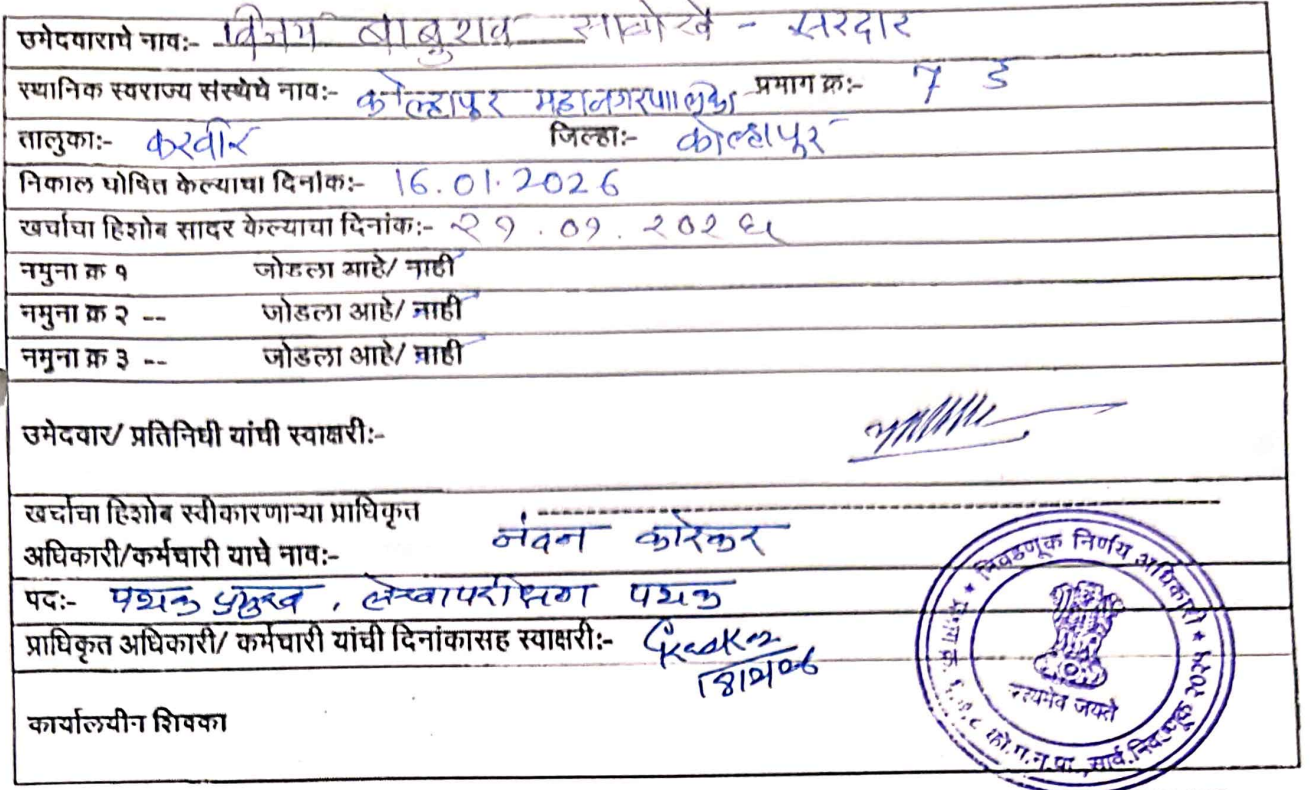 उमेदवाराचे नाव:- विजय बाबुराव साळोखे - सरदार
स्थानिक स्वराज्य संस्थेचे नाव:- कोल्हापूर महानगरपालिका प्रभाग क्र:- 7 ड
तालुका:- करवीर जिल्हा:- कोल्हापूर
निकाल घोषित केल्याचा दिनांक:- 16.01.2026
खर्चाचा हिशोब सादर केल्याचा दिनांक:- २१.०१.२०२६
नमुना क्र १ जोडला आहे/ नाही
नमुना क्र २ -- जोडला आहे/ नाही
नमुना क्र ३ -- जोडला आहे/ नाही
उमेदवार/ प्रतिनिधी यांची स्वाक्षरी:-
खर्चाचा हिशोब स्वीकारणाऱ्या प्राधिकृत
अधिकारी/कर्मचारी याचे नाव:- नंदन कारेकर
पद:- पथक प्रमुख, लेखापरीक्षण पथक
प्राधिकृत अधिकारी/ कर्मचारी यांची दिनांकसह स्वाक्षरी:-
कार्यालयीन शिक्का
निवडणूक निर्णय अधिकारी
को.म.न.पा.,सार्व.निवडणूक २०२५
सत्यमेव जयते